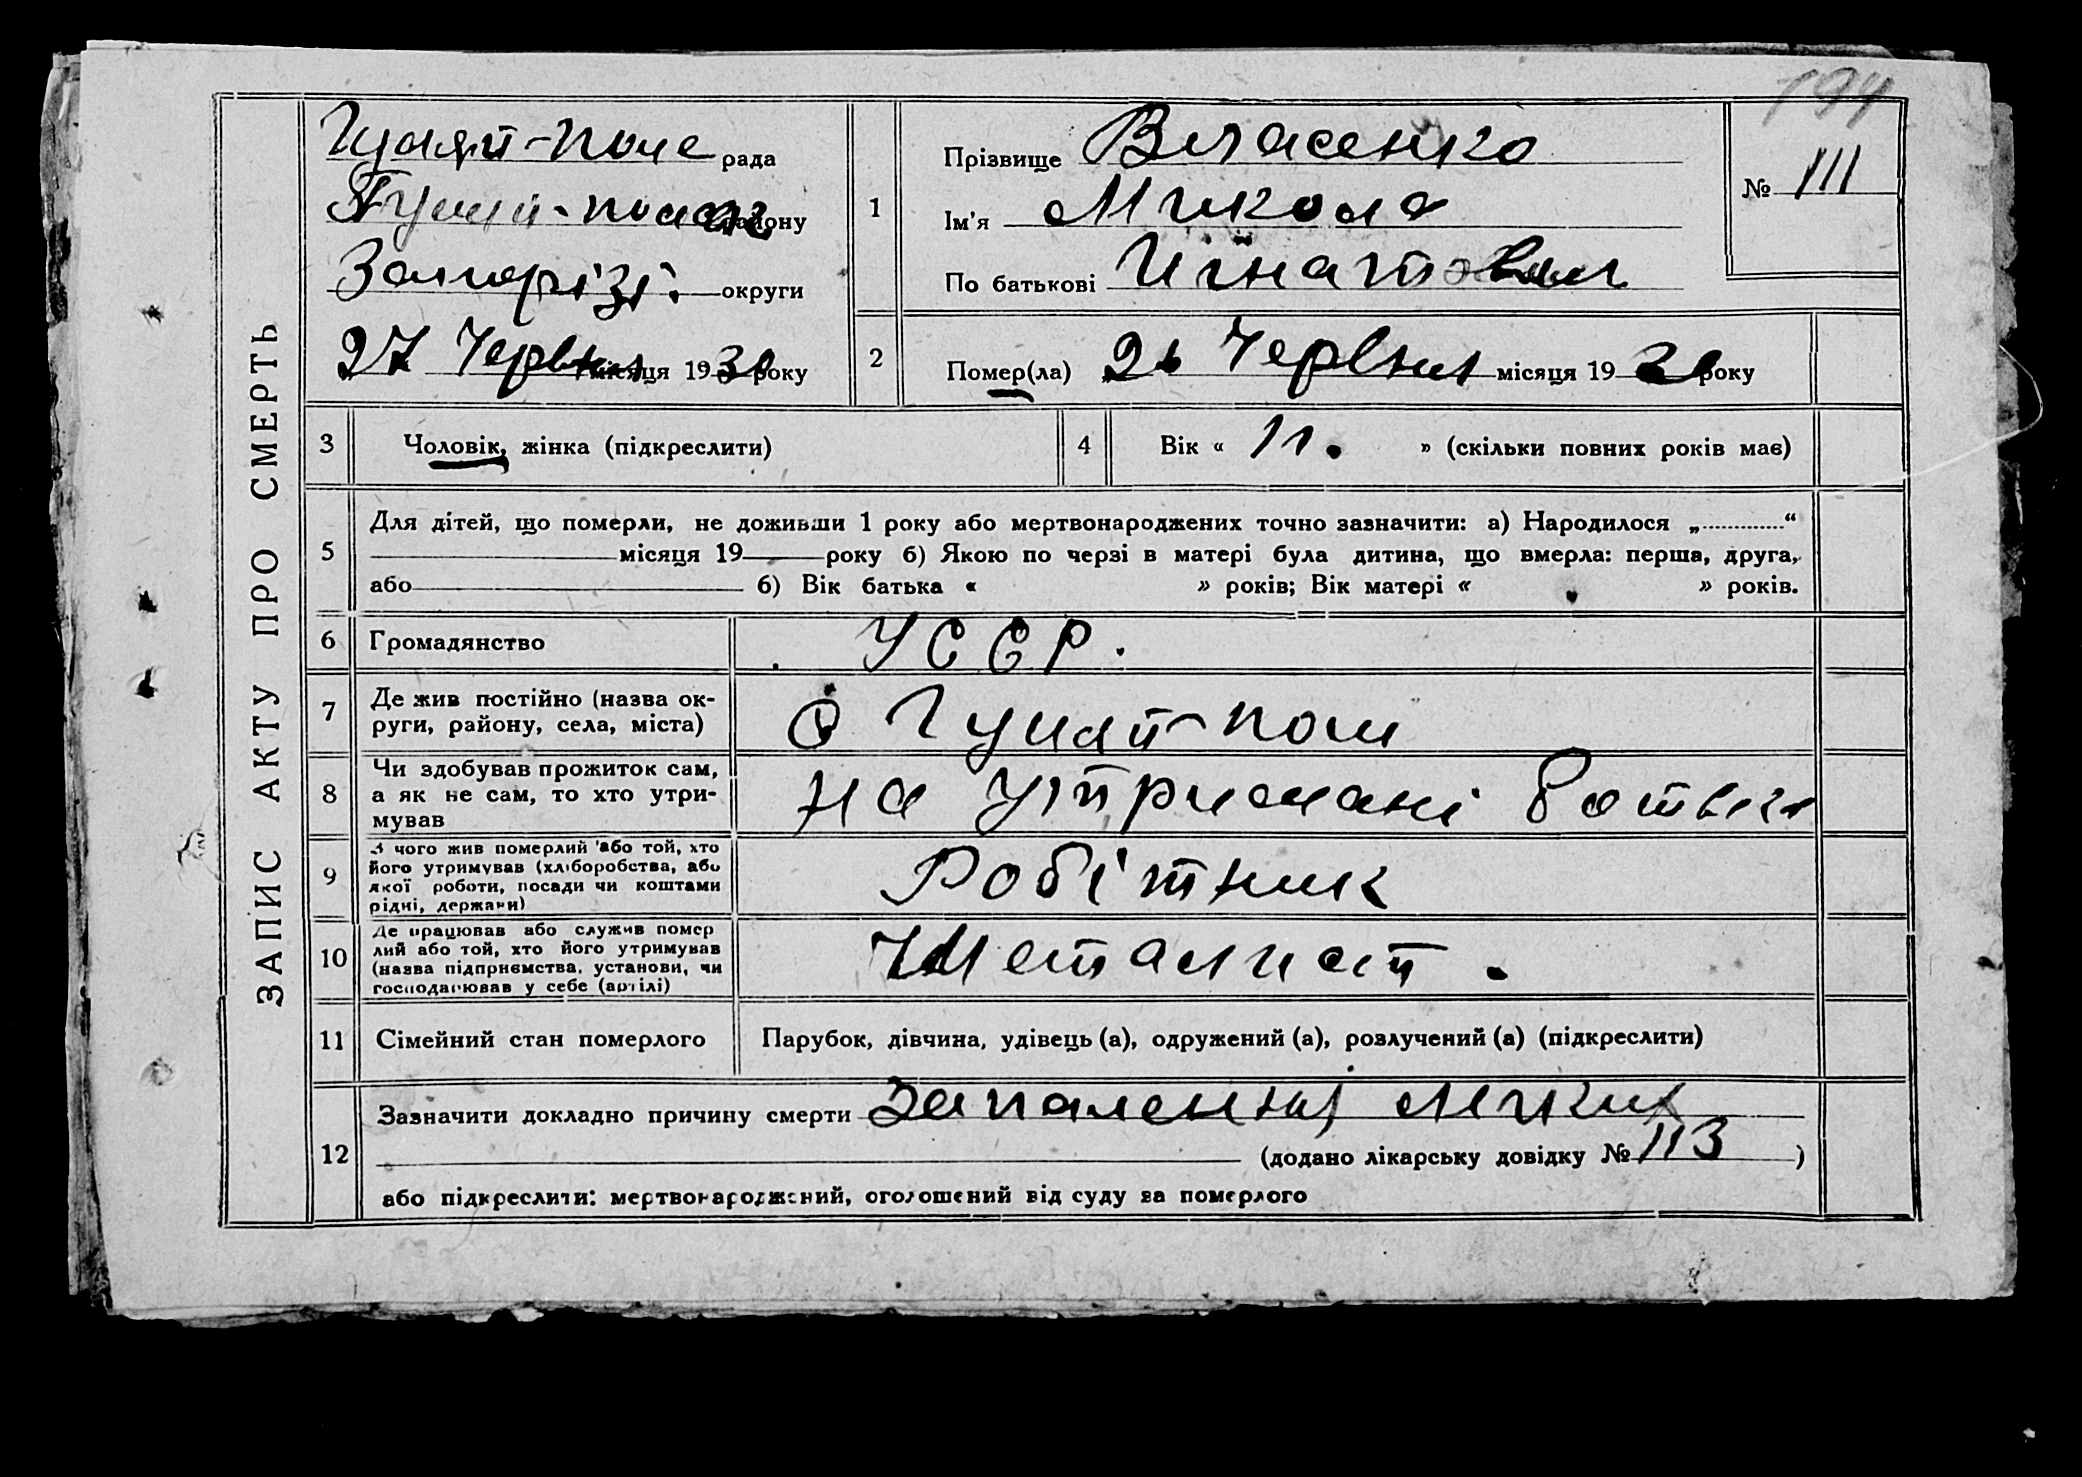 194
ЗАПИС АКТУ ПРО СМЕРТЬ
Гуляй-Поле рада
Гуляй-польськ району
Запоріз. округи
27 Червня місяця 1930 року
1
Прізвище Власенко
Ім'я Микола
По батькові Игнатович
№ 111
2
Помер(ла) 26 Червня місяця 1930 року
3 Чоловік, жінка (підкреслити)
4 Вік « 11. » (скільки повних років має)
5
Для дітей, що померли, не доживши 1 року або мертвонароджених точно зазначити: а) Народилося „ “
місяця 19 року б) Якою по черзі в матері була дитина, що вмерла: перша, друга,
або б) Вік батька « » років; Вік матері « » років.
6 Громадянство УССР.
7 Де жив постійно (назва ок-
руги, району, села, міста)
с Гуляй-поли
8 Чи здобував прожиток сам,
а як не сам, то хто утри-
мував
на утримані батька
9 З чого жив померлий або той, хто
його утримував (хліборобства, або
якої роботи, посади чи коштами
рідні, держави)
Робітник
10 Де працював або служив помер
лий або той, хто його утримував
(назва підприємства, установи, чи
господарював у себе (артілі)
Металист.
11 Сімейний стан померлого Парубок, дівчина, удівець (а), одружений (а), розлучений (а) (підкреслити)
12 Зазначити докладно причину смерти Запалення
(додано лікарську довідку № 113 )
або підкреслити: мертвонароджений, оголошений від суду за померлого